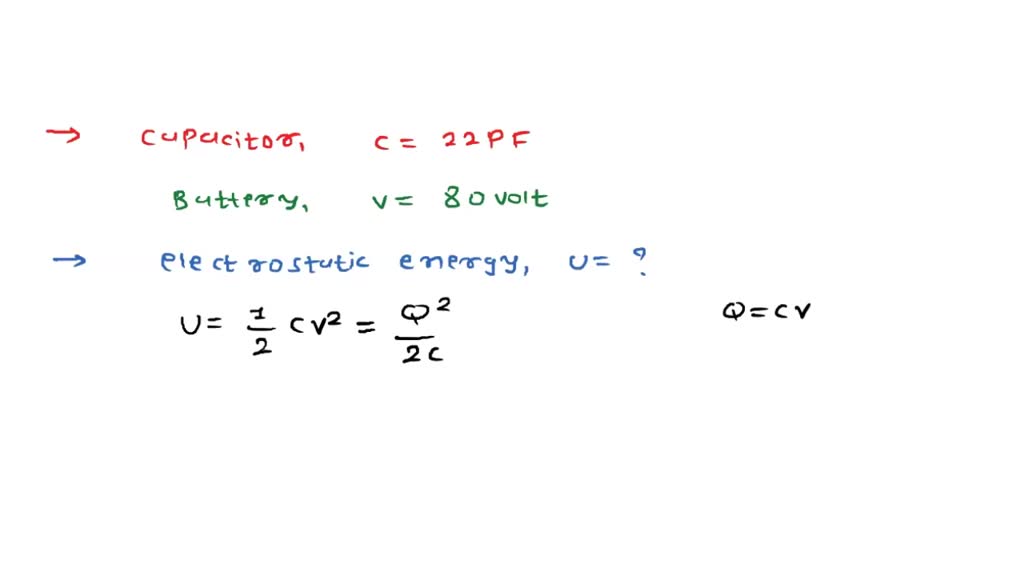 → capacitor, c = 22PF
Battery, v = 80 volt
→ electrostatic energy, U = ?
U = 1/2 cv² = Q²/2c Q = cv